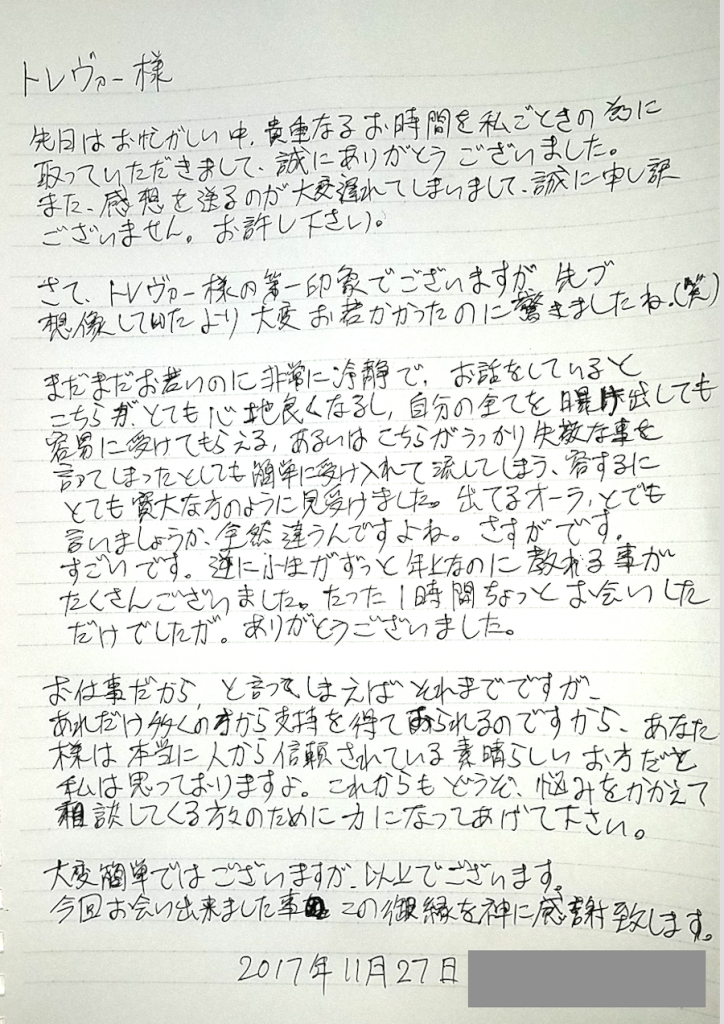 トレヴァー様
先日はお忙がしい中、貴重なるお時間を私ごときの為に
取っていただきまして、誠にありがとうございました。
また、感想を送るのが大変遅れてしまいまして、誠に申し訳
ございません。お許し下さい。
さて、トレヴァー様の第一印象でございますが、先づ
想像してゐたより大変お若かかったのに驚きましたね。(笑)
まだまだお若いのに非常に冷静で、お話をしていると
こちらがとても心地良くなるし、自分の全てを曝け出しても
容易に受けてもらえる、あるいはこちらがうっかり失敬な事を
言ってしまったとしても簡単に受け入れて流してしまう、要するに
とても寛大な方のように見受けました。出てるオーラ、とでも
言いましょうか、全然違うんですよね。さすがです。
すごいです。逆に小生がずっと年上なのに教れる事が
たくさんございました。たった1時間ちょっとお会いした
だけでしたが。ありがとうございました。
お仕事だから、と言ってしまえばそれまでですが、
あれだけ多くの方から支持を得ておられるのですから、あなた
様は本当に人から信頼されている素晴らしいお方だと
私は思っておりますよ。これからもどうぞ、悩みをかかえて
相談してくる方々のために力になってあげて下さい。
大変簡単ではございますが、以上でございます。
今回お会い出来ました事、この御縁を神に感謝致します。
2017年11月27日